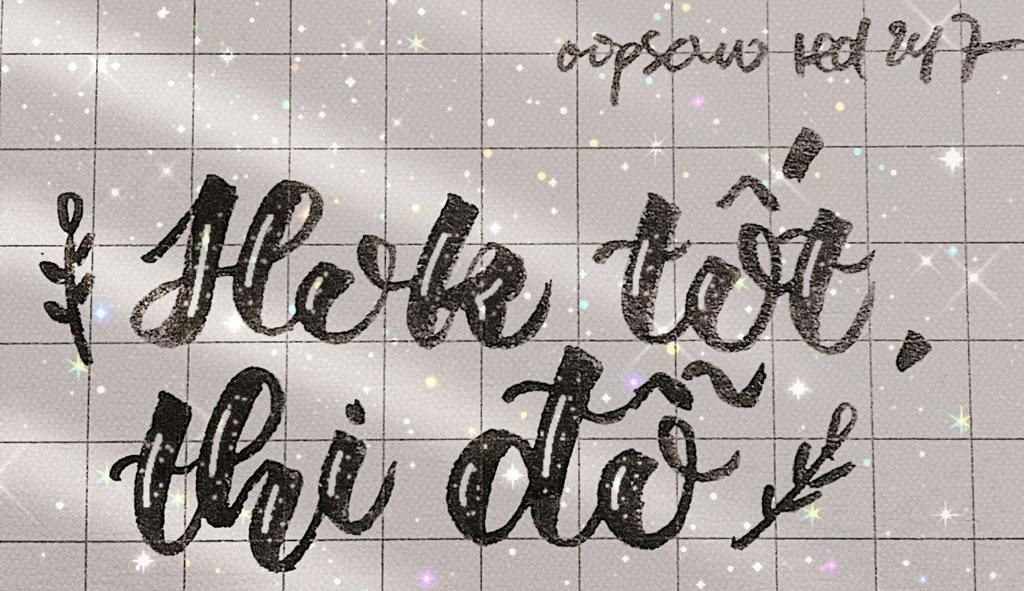 oopsaw red 247
Hok tốt,
thi đỗ